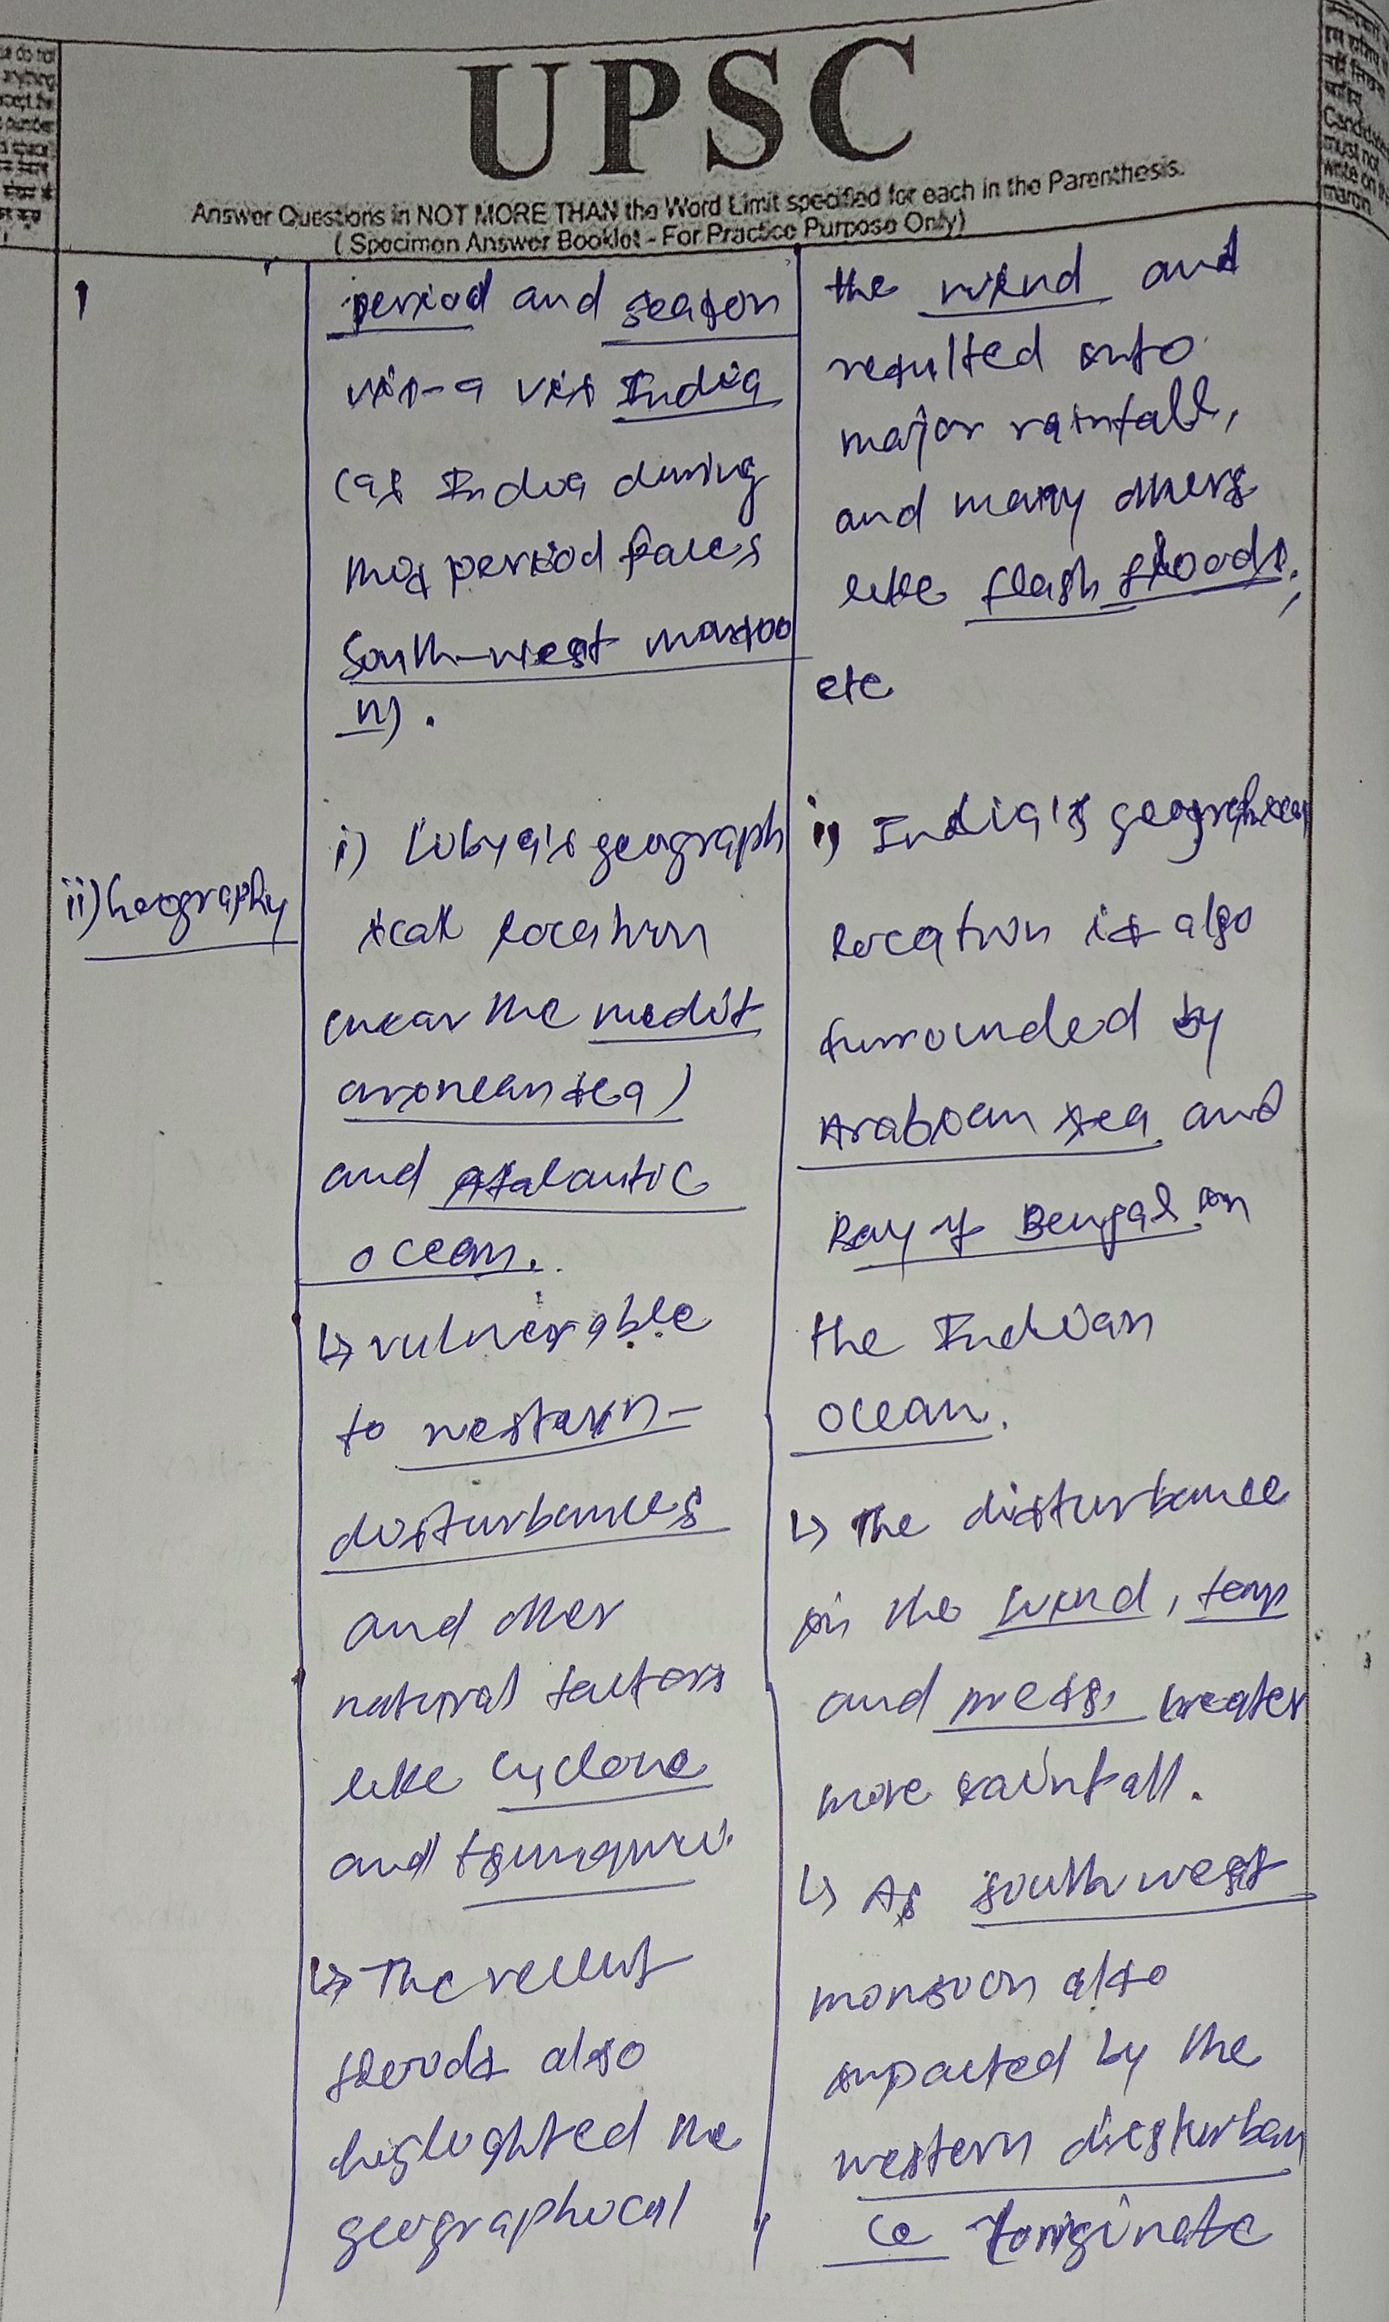 UPSC
Answer Questions in NOT MORE THAN the Word Limit specified for each in the Parenthesis.
( Specimen Answer Booklet - For Practice Purpose Only)
Candidates
must not
write on
margin
period and season
vis-a vis India
(as India during
this period faces
South-west monsoo
n).
ii) Geography
i) Libya's geograph
ical location
(near the medit
arronean sea)
and Atalantic
ocean.
↳ vulnerable
to western-
disturbances
and other
natural factors
like cyclone
and tsunami.
↳ The recent
floods also
highlighted the
geographical
the wind and
resulted into
major rainfall,
and many others
like flash floods,
etc
i) India's geographical
location is also
surrounded by
Arabian sea and
Bay of Bengal in
the Indian
ocean.
↳ The disturbance
in the wind, temp
and press. creates
more rainfall.
↳ As south west
monsoon also
impacted by the
western disturban
ce originate